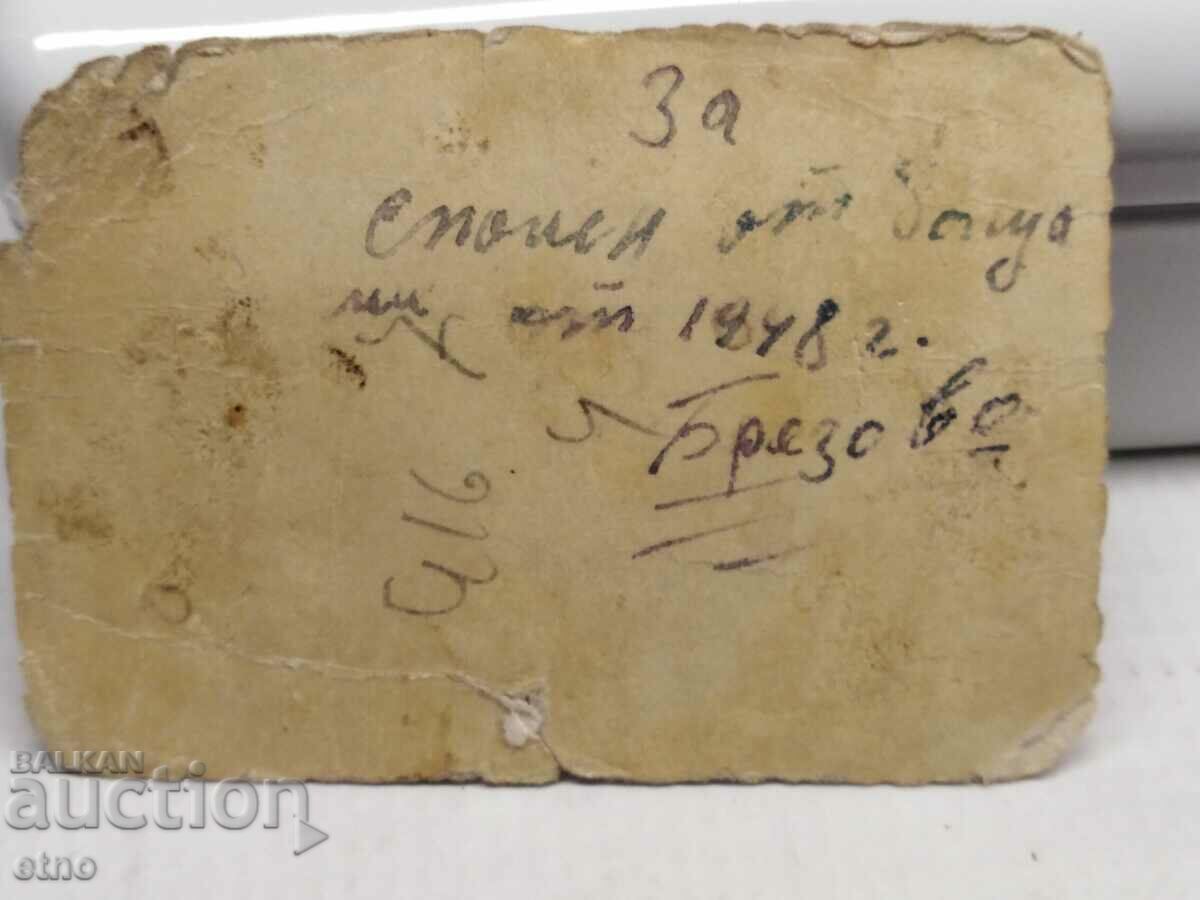 За
спомен от баща
ми от 1948 г.
Брязово
916
BALKAN
auction
etno